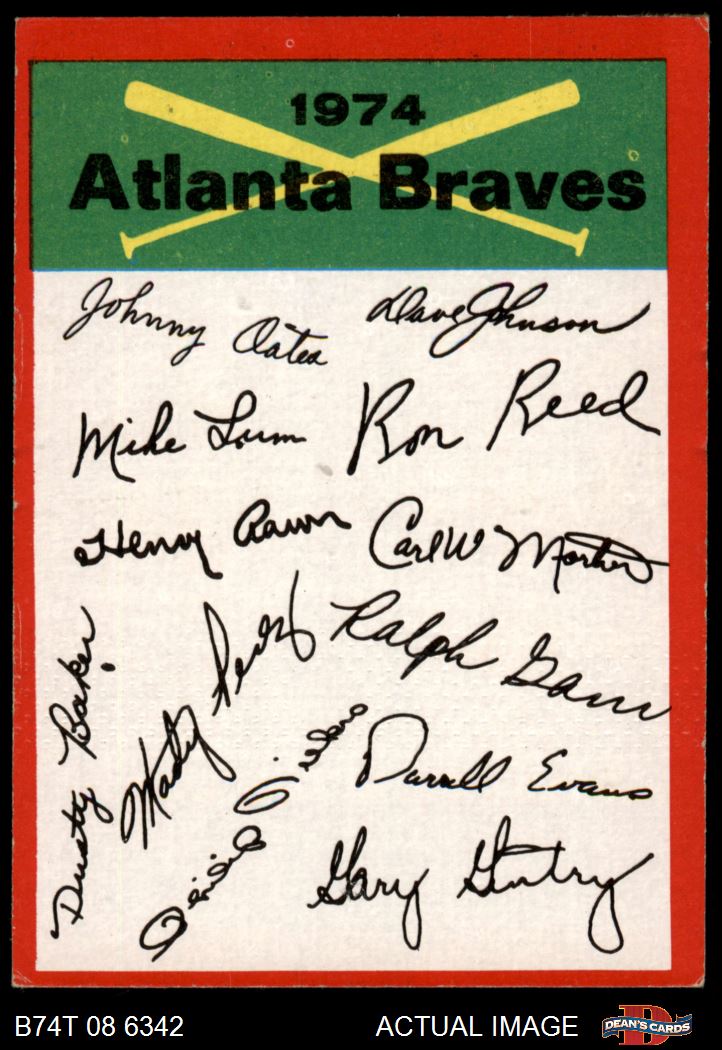 1974
Atlanta Braves
Johnny Oates
Dave Johnson
Mike Lum
Ron Reed
Henry Aaron
Carl W Morton
Marty Perez
Ralph Garr
Dusty Baker
Darrell Evans
Gary Gentry
B74T 08 6342
ACTUAL IMAGE
D
DEAN'S CARDS